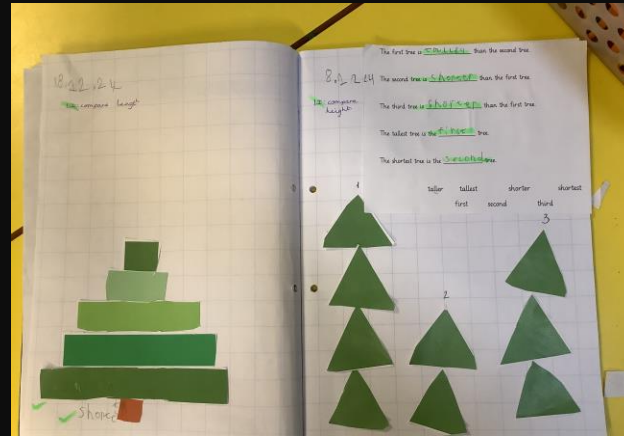 18.22.24
LI: compare lenght
shorter
8.1 2 24
LI: compare
height
The first tree is taller than the second tree.
The second tree is shorter than the first tree.
The third tree is shorter than the first tree.
The tallest tree is the tree.
The shortest tree is the second tree.
taller tallest shorter shortest
first second third
1
2
3